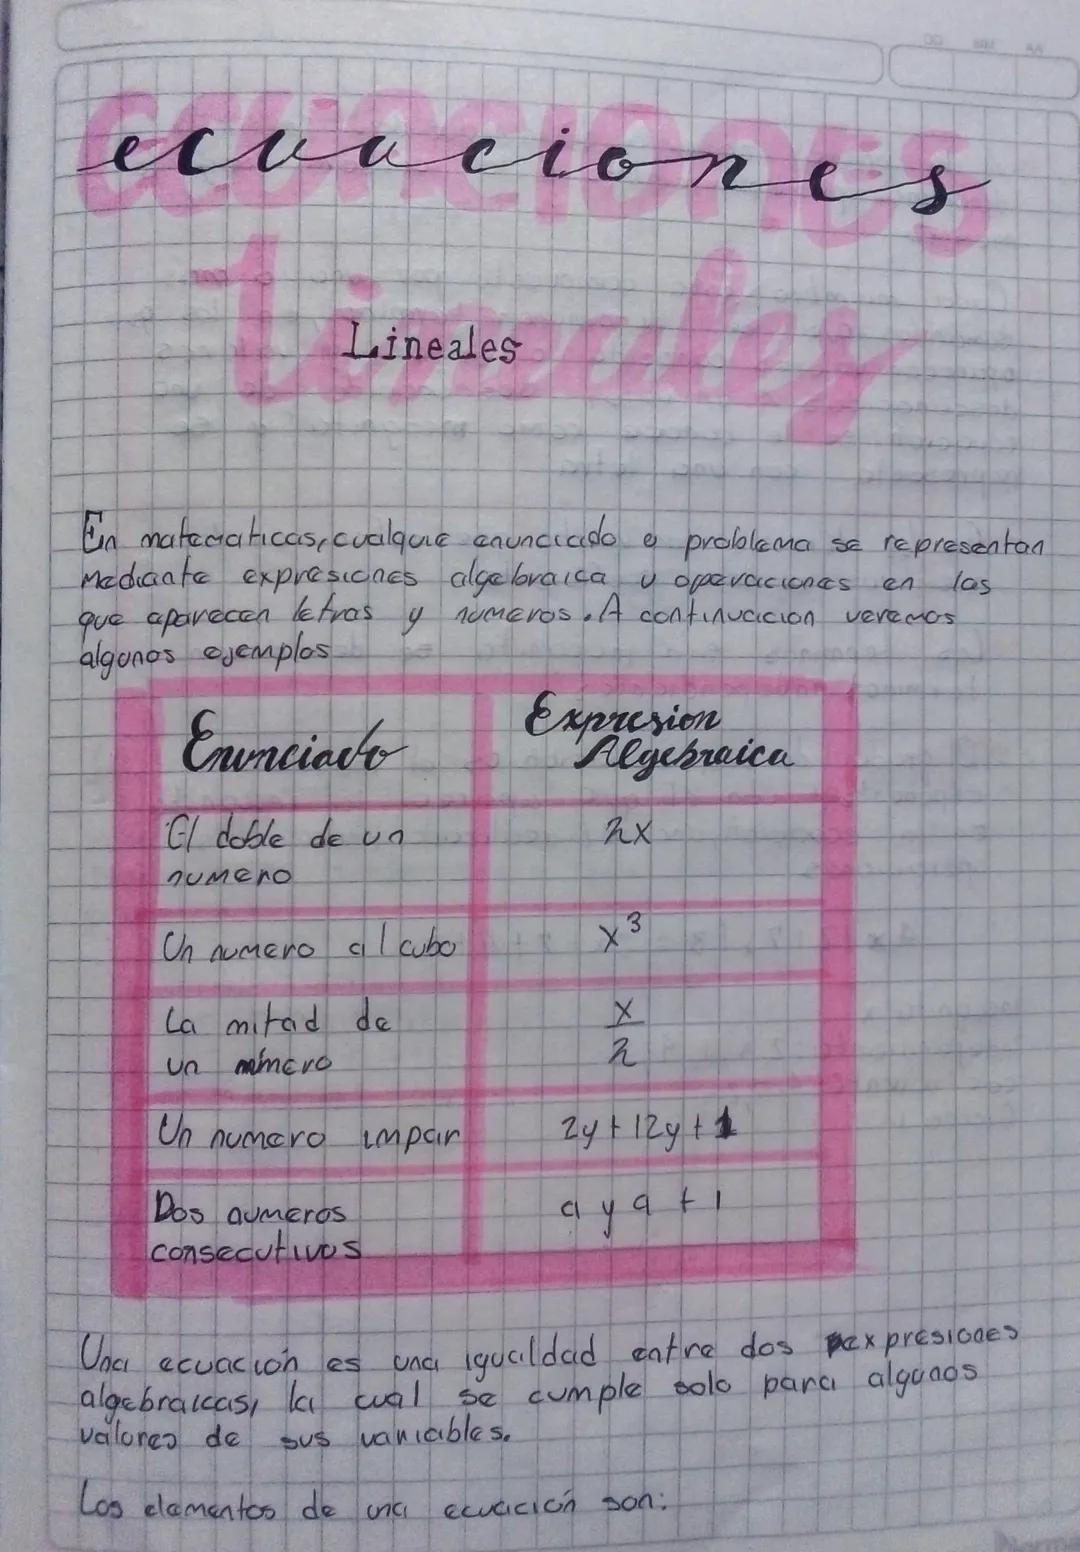 ecuaciones
Lineales
En matematicas, cualquie enunciado o problema se representan
Mediante expresiones algebraica y operaciones en las
que aparecen letras y numeros. A continuacion veremos
algunos ejemplos
Enunciado
Expresion
Algebraica
El doble de un
numero
2x
Un numero al cubo
x³
La mitad de
un número
x
2
Un numero impar
2y+12y+1
Dos numeros
consecutivos
a y a + 1
Una ecuación es una igualdad entre dos expresiones
algebraicas, la cual se cumple solo para algunos
valores de sus variables.
Los elementos de una ecuación son: